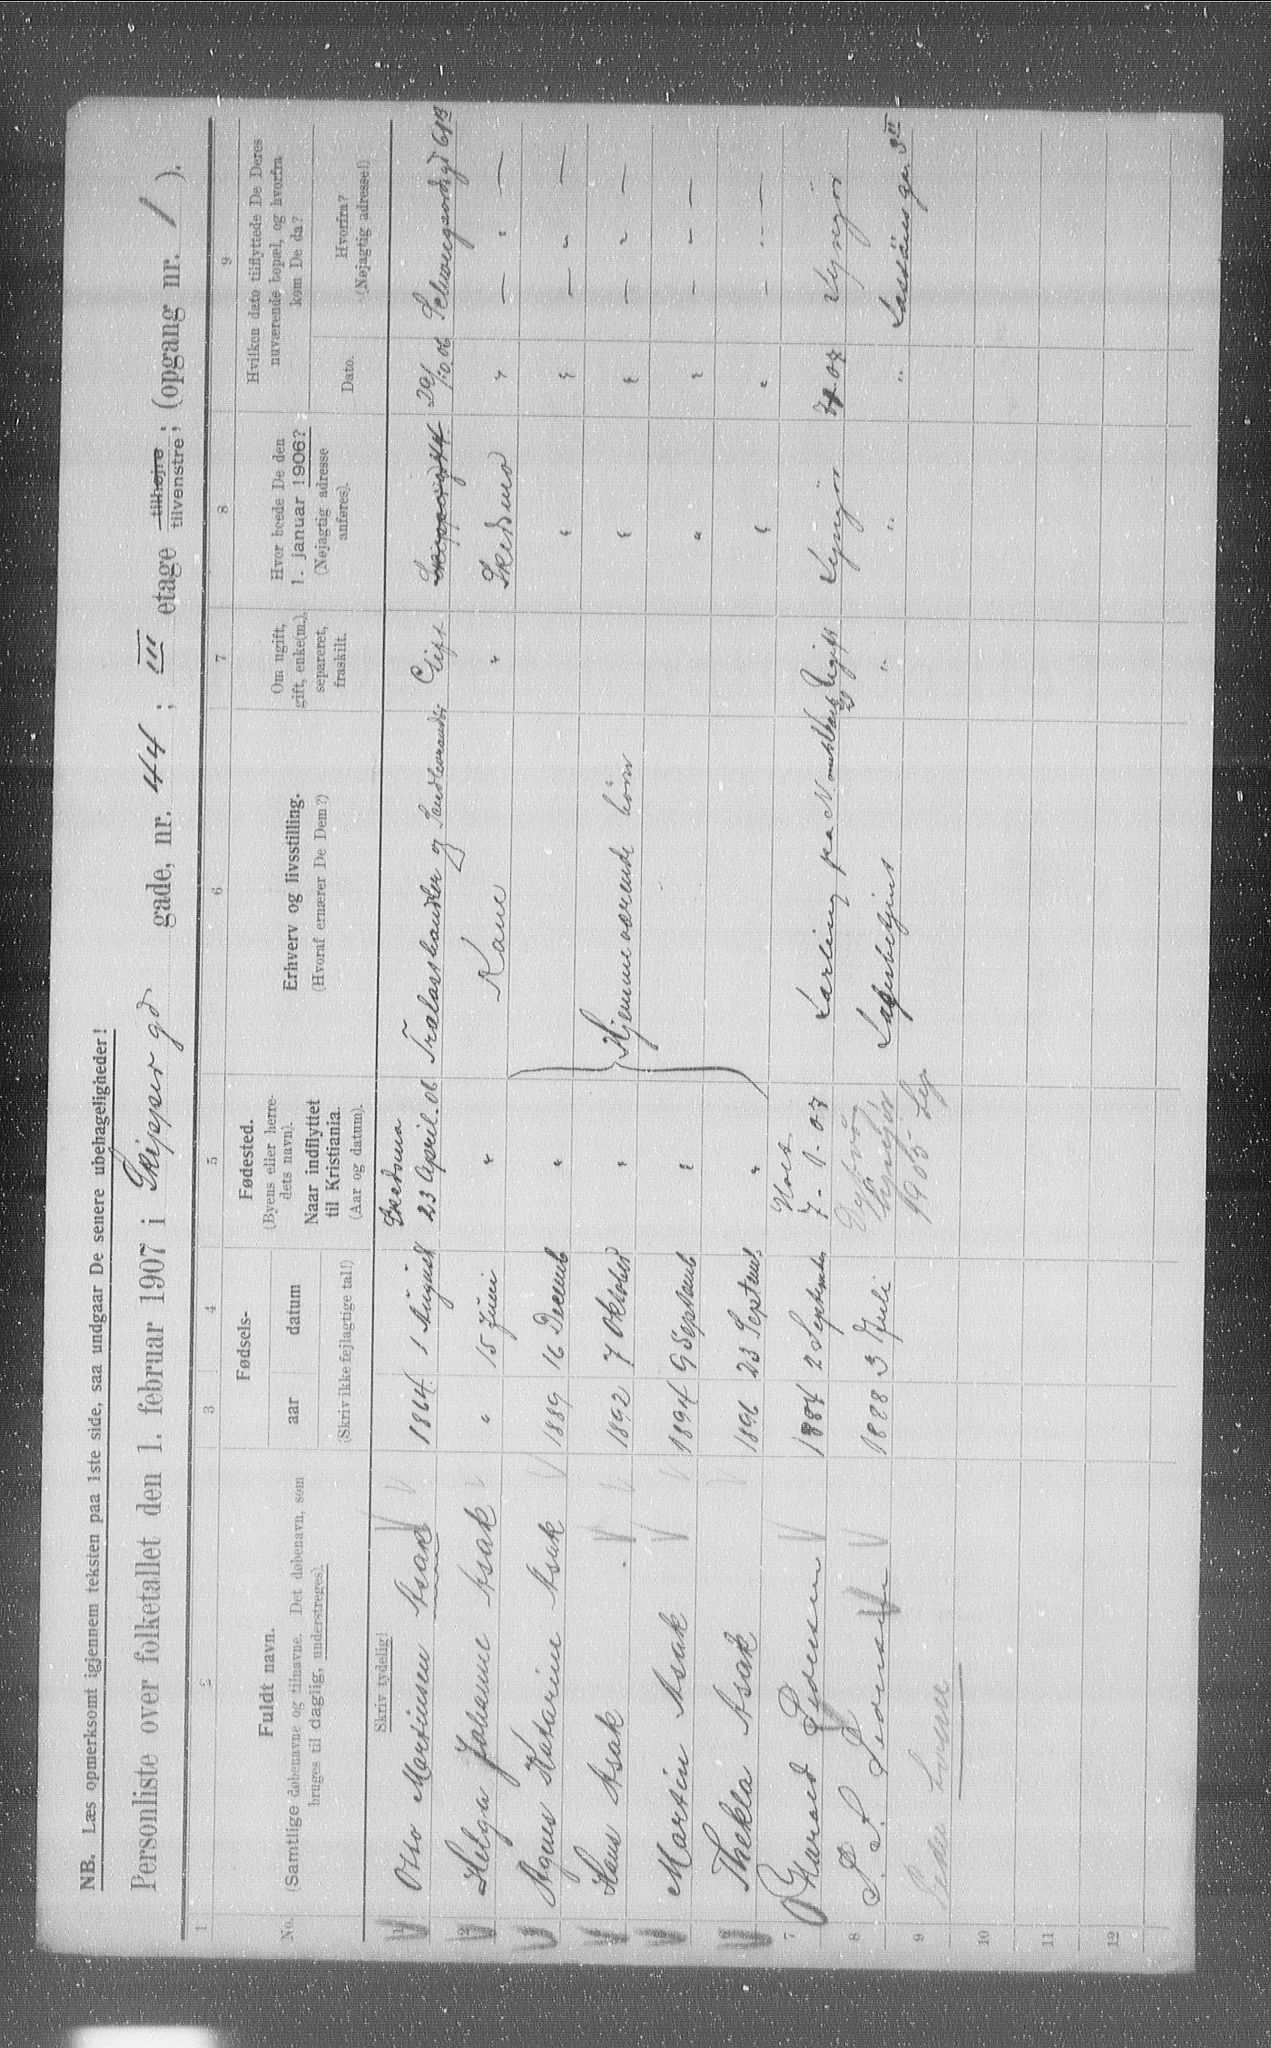 NB. Læs opmerksomt igjennem teksten paa 1ste side, saa undgaar De senere ubehageligheder!
Personliste over folketallet den 1. februar 1907 i Skipper gd gade, nr. 44; III etage tilhøjre tilvenstre; (opgang nr. 1 ).
1 2 3 4 5 6 7 8 9
No. Fuldt navn.
(Samtlige døbenavne og tilnavne. Det døbenavn, som
bruges til daglig, understreges).
Fødsels-
aar datum
(Skriv ikke fejlagtige tal!)
Fødested.
(Byens eller herre-
dets navn).
Naar indflyttet
til Kristiania.
(Aar og datum).
Erhverv og livsstilling.
(Hvoraf ernærer De Dem?)
Om ugift,
gift, enke(m.),
separeret,
fraskilt.
Hvor boede De den
1. januar 1906?
(Nøjagtig adresse
anføres).
Hvilken dato tilflyttede De Deres
nuværende bopæl, og hvorfra
kom De da?
Dato. Hvorfra?
(Nøjagtig adresse!)
Skriv tydelig!
1 Otto Martinsen Asak 1864 1 August Skedsmo 23 April. 06 Trælasthandler og Gift Skippergd 44. 20/10.06 61
2 Helga Johanne Asak " 15 Juni " Kone " Skedsmo " — " —
3 Agnes Katarine Asak 1889 16 Decemb " Hjemmeværende börn " " — " —
4 Hans Asak 1892 7 Oktober " " " — " —
5 Martin Asak 1894 9 Septemb " " " — " —
6 Thekla Asak 1896 23 Septemb. " " " — " —
7 Harald Pedersen 1884 2 September Holt 7-1-07 Lærling paa Ugift Lyngör 07 Lyngör
8 P. S. 1888 3 Juli 1905 " " "
9 Peder
10
11
12